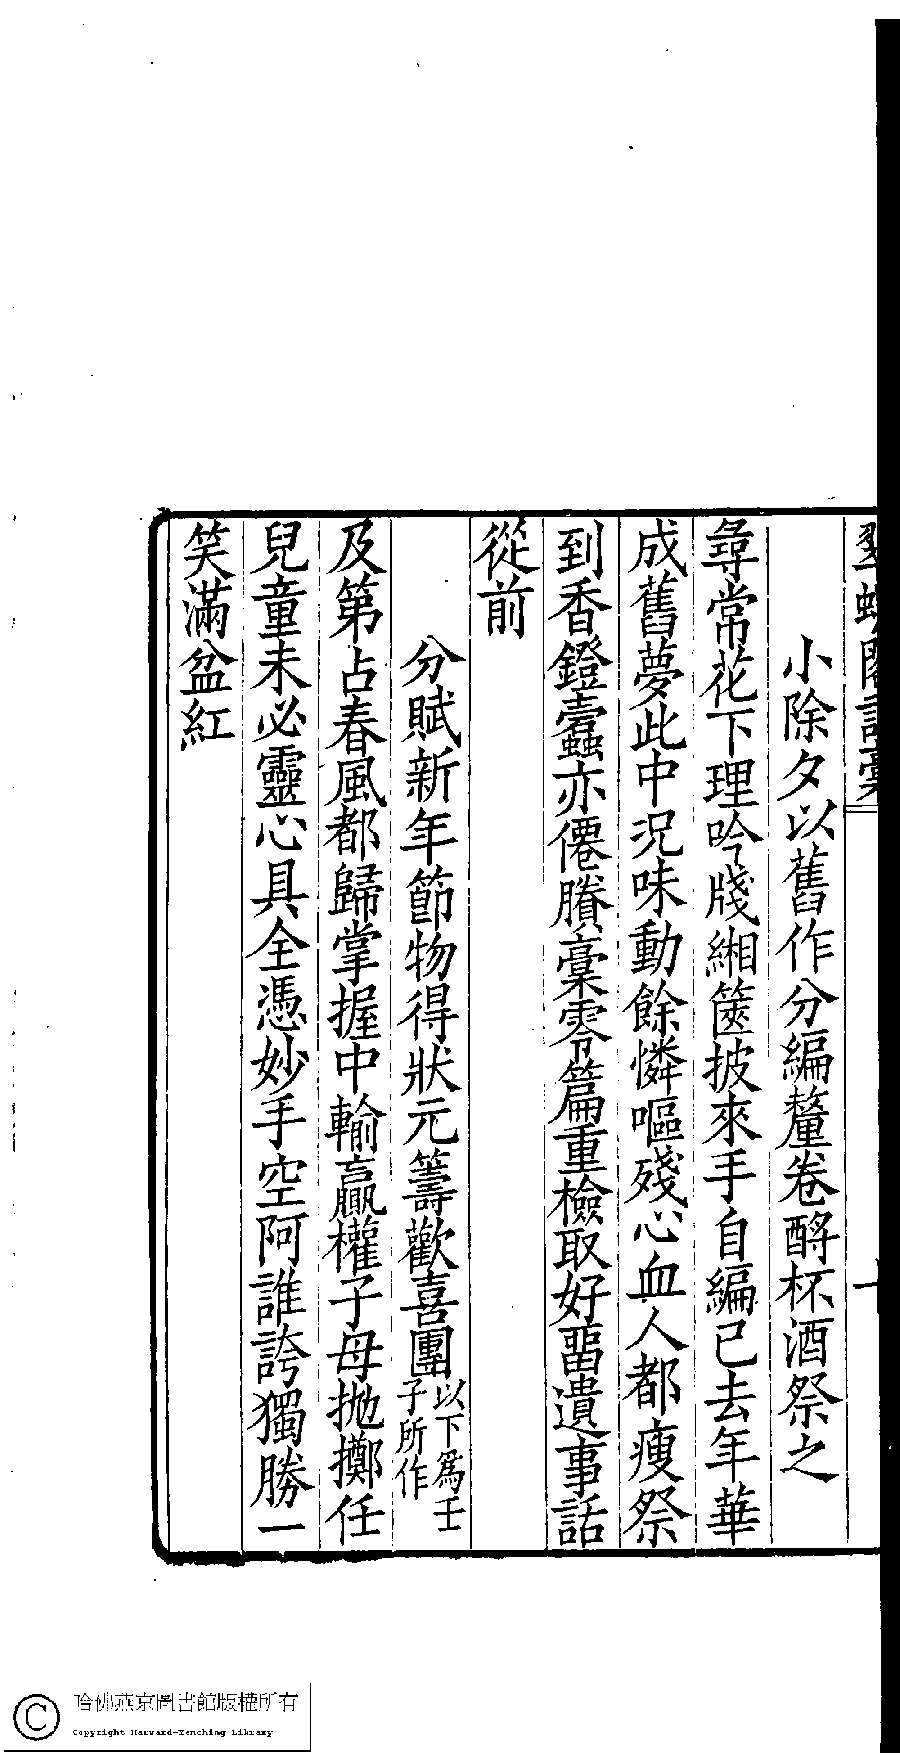 小除夕以舊作分編釐卷酹杯酒祭之
尋常花下理吟牋緗篋披來手自編已去年華
成舊夢此中況味動餘憐嘔殘心血人都瘦祭
到香鐙蠹亦僊賸稾零篇重檢取好畱遺事話
從前
分賦新年節物得狀元籌歡喜團以下爲壬
子所作
及第占春風都歸掌握中輸贏權子母拋擲任
兒童未必靈心具全憑妙手空阿誰誇獨勝一
笑滿盆紅
哈佛燕京圖書館版權所有
Copyright Harvard-Yenching Library